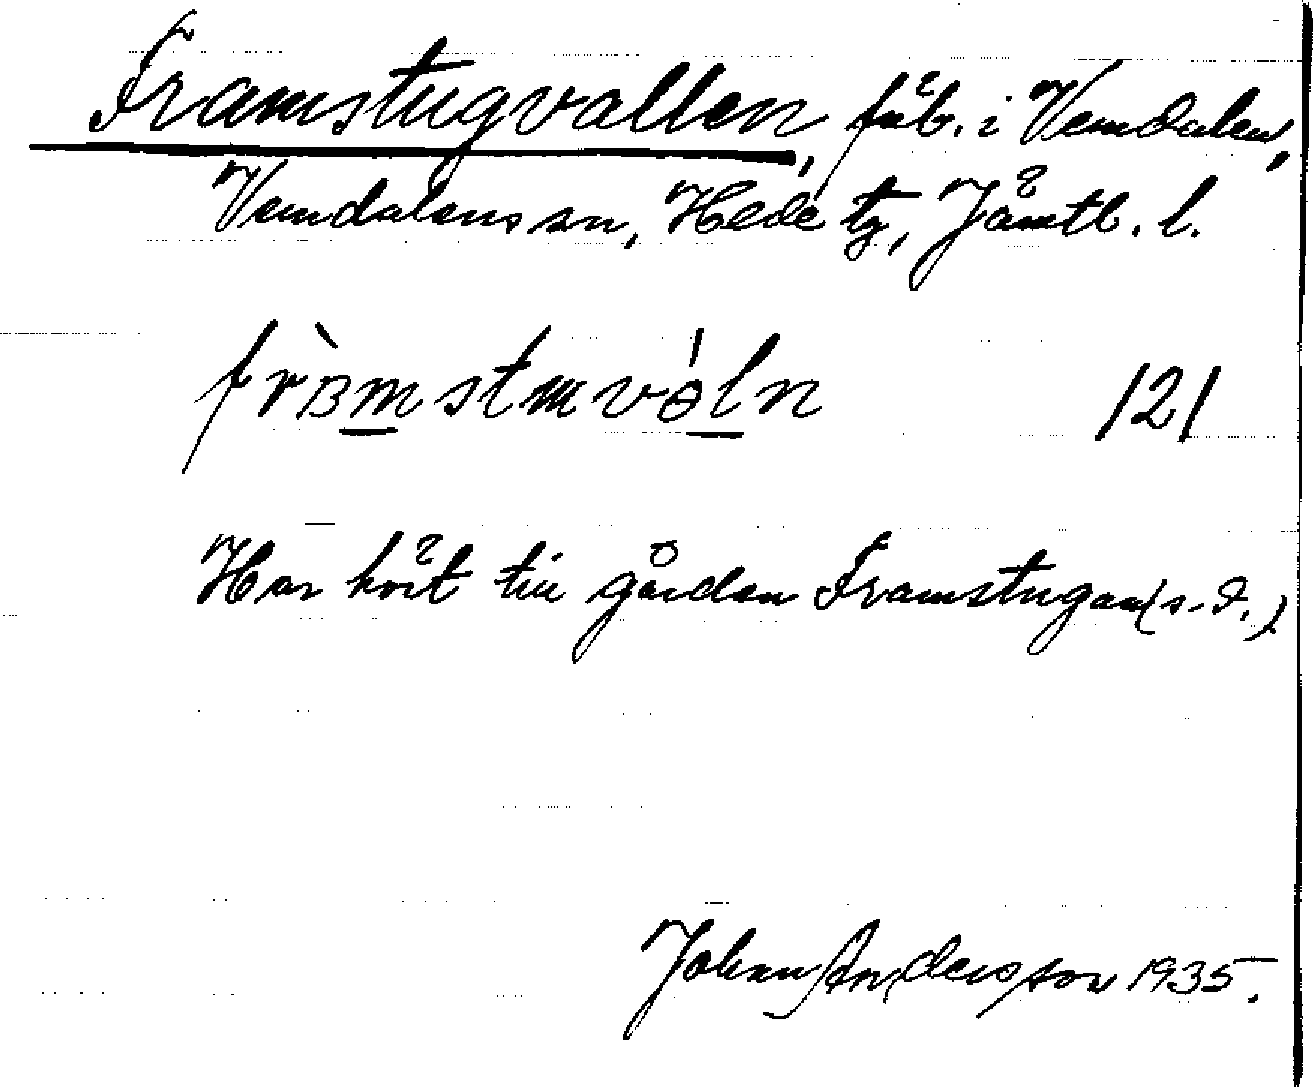 Framstugvallen, fäb. i Vemdalen,
Vemdalens sn, Hede tg, Jämtl. l.
121
Har hört till gården Framstugan (s. d.)
Johan Andersson 1935.